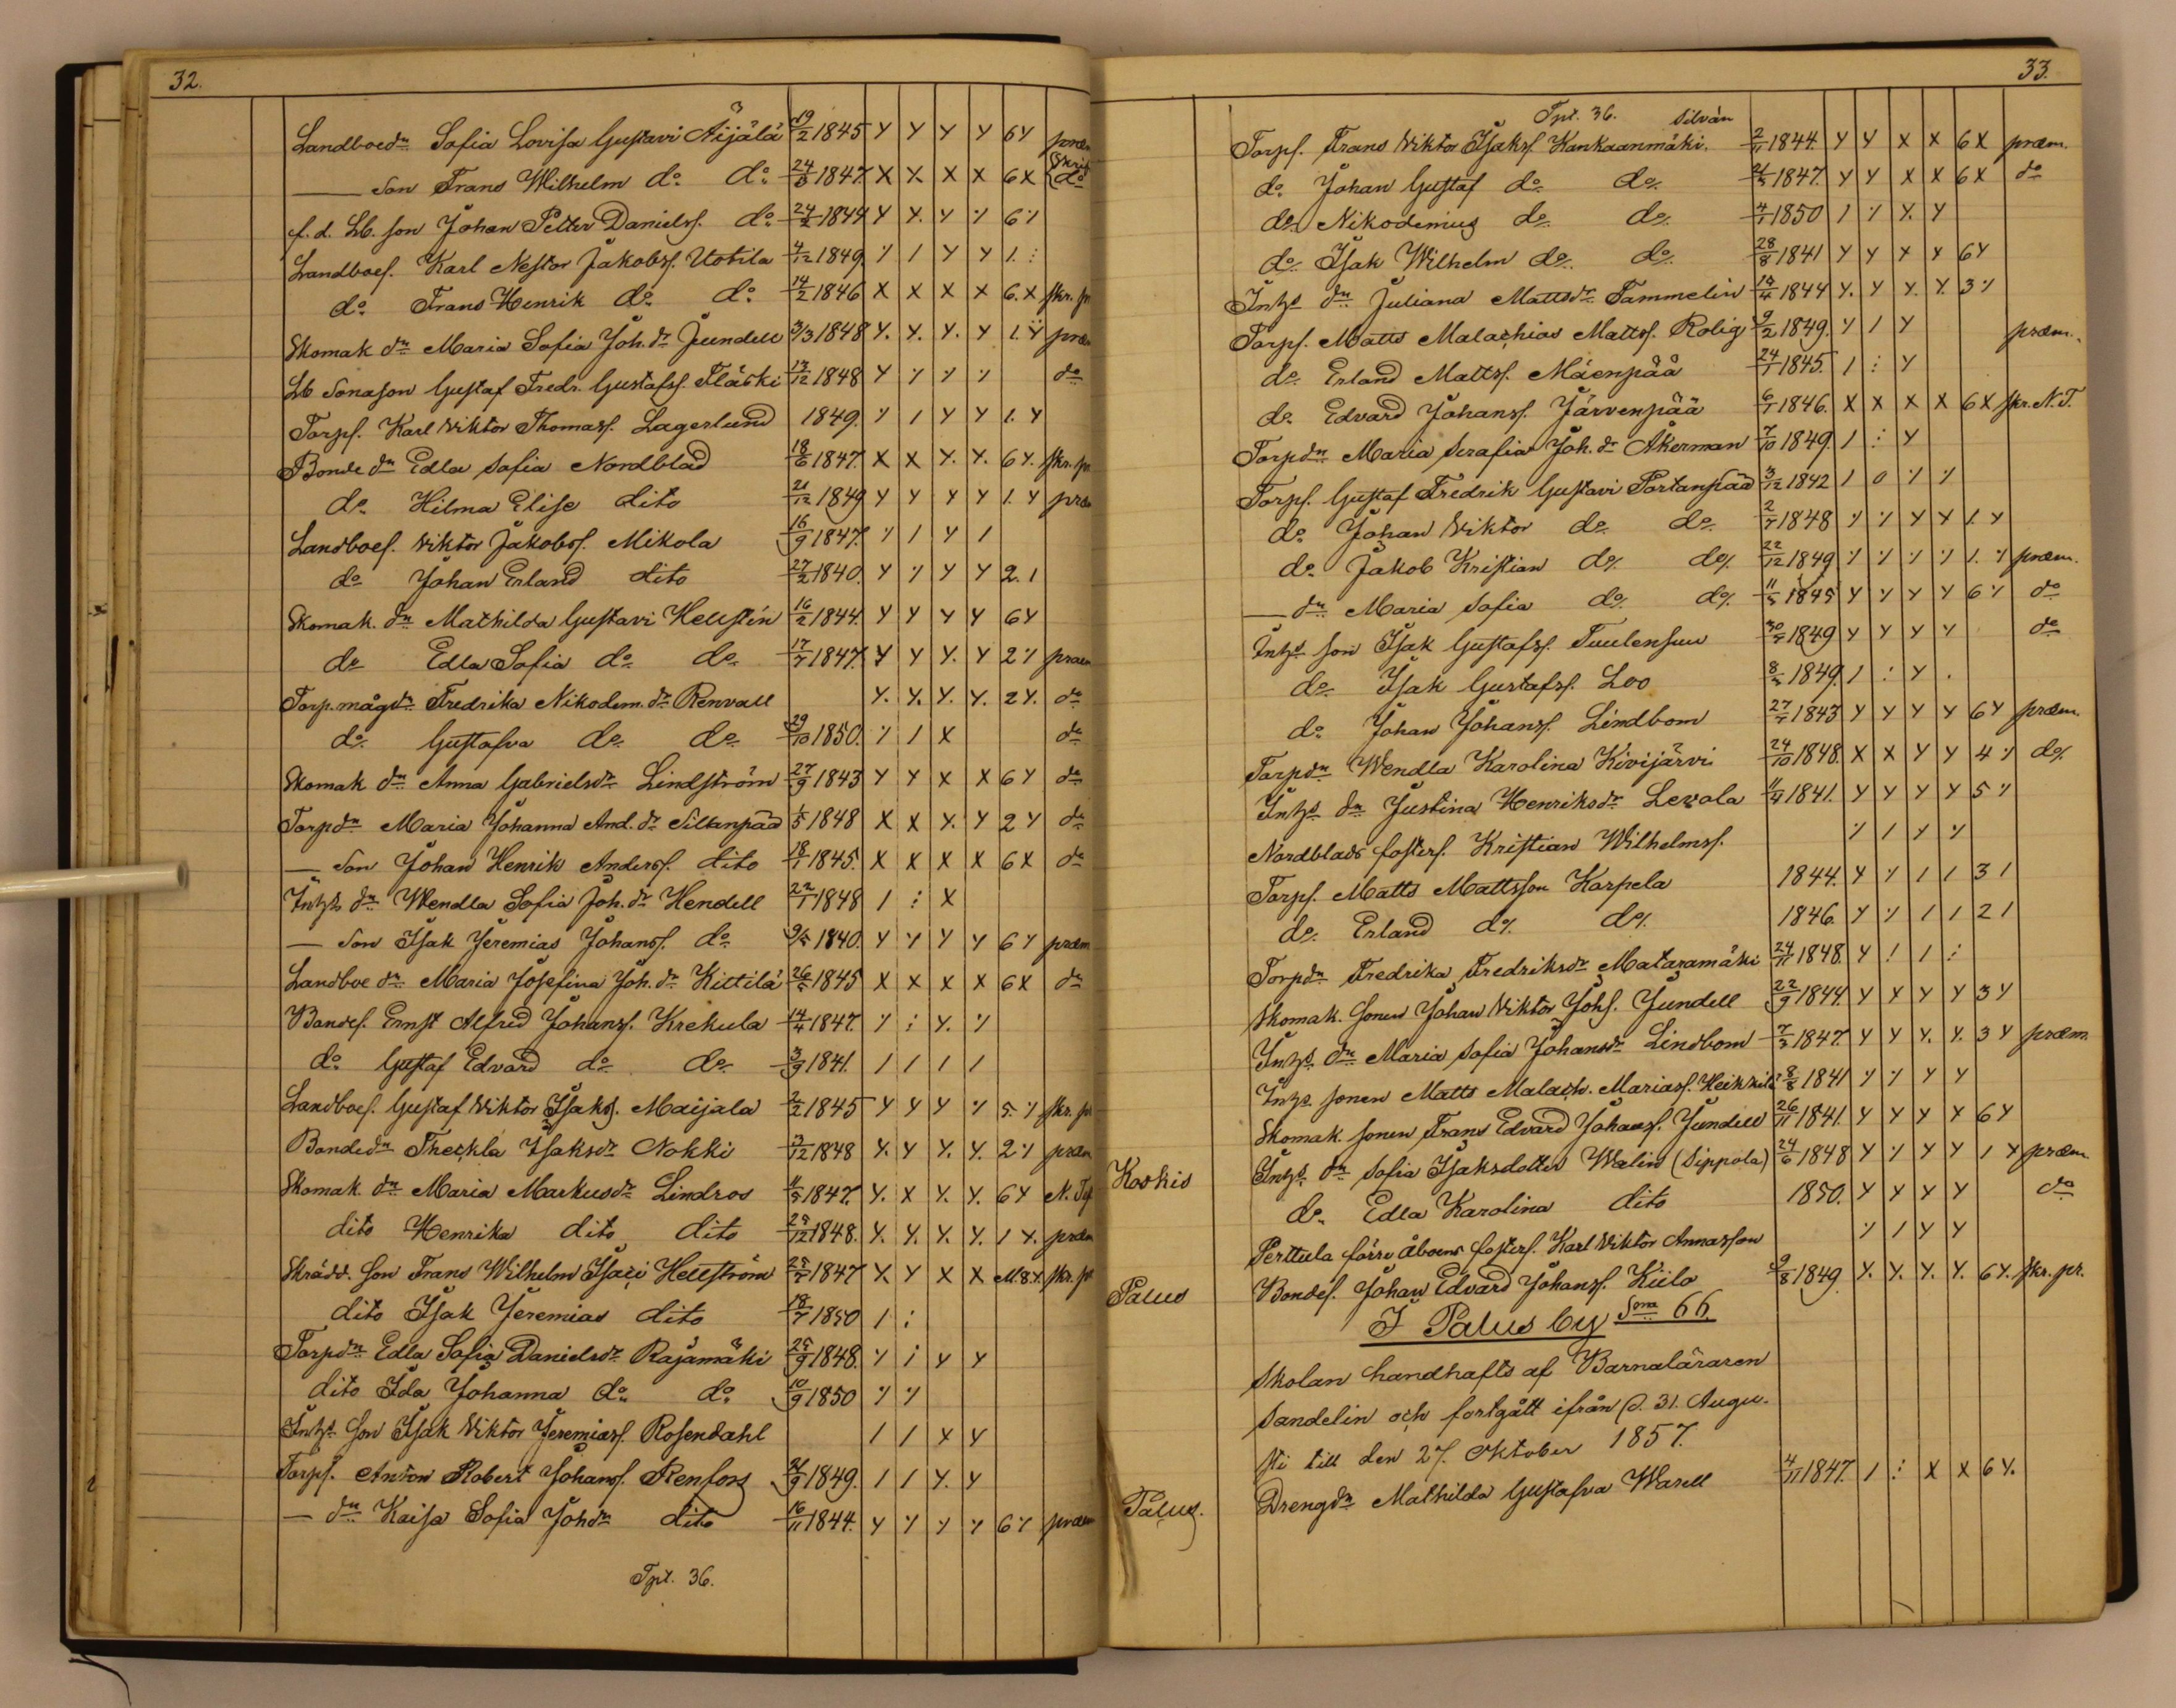 32.
Landboedr Sofia Lovisa Gustavi Äijälä 19/2 1845 Y Y Y Y 6Y præm
— Son Frans Wilhelm do do 24/8 1847. X X X X 6X do
f. d. Lb. son Johan Petter Daniels. do 24/2 1844 Y Y. Y ٪ 6٪
Landboes. Karl Nestor Jakobs. Uotila 4/12 1849. ٪ 1 Y Y 1. :
do Frans Henrik do do 14/2 1846 X X X X 6. X skr. pr
Skomak dr Maria Sofia Joh. dr Jundell 3/3 1848 Y. Y. Y. Y 1. Y præm
Lb Sonason Gustaf Fredr. Gustafs. Fläski 12/12 1848 Y ٪ ٪ ٪ do
Torps. Karl Viktor Thomas. Lagerlund 1849. ٪ 1 Y Y 1. Y
Bonde dr Edla Sofia Nordblad 18/6 1847. X X Y. Y. 6Y. skr. pr
do Hilma Elise dito 21/12 1849 Y Y Y Y 1. Y præm
Landboes. Viktor Jakobs. Mikola 16/9 1847. ٪ 1 Y 1
do Johan Erland dito 27/2 1840. Y ٪ Y Y 2. 1
Skomak. dr Mathilda Gustavi Hellstén 16/2 1844. Y Y Y Y 6Y
do Edla Sofia do do 17/7 1847. Y Y Y. Y 2٪ præm
Torp. mågdr Fredrika Nikodem. dr Renvall Y. Y. Y. Y. 2Y. do
do Gustafva do do 29/10 1850. ٪ 1 X do
Skomak dr Anna Gabrielsdr Lindström 27/9 1843 Y Y X X 6Y do
Torpdr Maria Johanna And. dr Siltanpää 1/5 1848 X X Y. Y 2Y do
— Son Johan Henrik Anders. dito 18/1 1845. X X X X 6X do
Inhs dr Wendla Sofia Joh. dr Hendell 22/1 1848 1 : X
— Son Isak Jeremias Johans. do 9/5 1840. Y Y Y Y 6Y præm
Landboe dr Maria Josefina Joh. dr Kittilä 26/5 1845 X X X X 6X do
Bondes. Ernst Alfred Johans. Krekula 14/4 1847. ٪ : Y. ٪
do Gustaf Edvard do do 3/9 1841. 1 1 1 1
Landboes. Gustaf Viktor Isaks. Maijala 2/2 1845 Y Y Y ٪ 5. ٪ skr. pr
Bondedr Theckla Isaksdr Nokki 3/12 1848 Y. Y Y. Y. 2٪ præm
Skomak. dr Maria Markusdr Lindros 11/5 1847. Y. X Y. Y. 6Y N. T.
dito Henrika dito dito 25/12 1848. Y. Y. Y. Y. 1 Y. præm
Skrädd. Son Frans Wilhelm Isaci Hellström 25/7 1847 Y. Y X X M. 8Y. skr. pr
dito Isak Jeremias dito 18/7 1850 1 :
Torpdr Edla Sofia Danielsdr Rajamäki 25/9 1848. ٪ : Y Y
dito Ida Johanna do do 10/9 1850 ٪ ٪
Inhs. Son Isak Viktor Jeremias. Rosendahl 1 1 X Y
Torps. Anton Robert Johans. Renfors 21/9 1849. 1 1 Y. Y
— dr Kaisa Sofia Johdr dito 16/11 1844. Y ٪ Y ٪ 6٪ præm
Tpt. 36.
33.
Tpt. 36. Silván
Torps. Frans Viktor Isaks. Kankaanmäki. 2/11 1844. Y Y X X 6X præm.
do Johan Gustaf do do 21/5 1847. Y Y X X 6X do
do Nikodemus do do 4/1 1850 1 ٪ Y. Y
do Isak Wilhelm do do 28/8 1841 Y Y Y Y 6Y
Inhs dr Juliana Mattsdr Tammelin 12/4 1844 Y. Y Y. Y. 3٪
Torps. Matts Malachias Matts. Rolig 9/2 1849. ٪ 1 Y præm.
do Erland Matts. Mäenpää 24/1 1845. 1 : Y
do Edvard Johans. Järvenpää 6/1 1846. X X X X 6X skr. N. T.
Torpdr Maria Serafia Joh. dr Åkerman 7/10 1849. 1 : Y
Torps. Gustaf Fredrik Gustavi Portanpää 3/12 1842 1 0 ٪ ٪
do Johan Viktor do do 2/7 1848 ٪ ٪ Y Y 1. Y
do Jakob Kristian do do 22/12 1849 ٪ ٪ ٪ ٪ 1. ٪ præm.
— dr Maria Sofia do do 11/5 1845 Y Y Y Y 6٪ do
Inhs son Isak Gustafs. Tuulensuu 30/7 1849 Y Y Y Y do
do Isak Gustafs. Loo 8/3 1849. 1 : Y .
do Johan Johans. Lindbom 27/7 1843 Y Y Y Y 6Y præm.
Torpdr Wendla Karolina Kivijärvi 24/10 1848. X X Y Y 4٪ do
Inhs dr Justina Henriksdr Levola 11/4 1841. Y Y Y Y 5٪
Nordblads fosters. Kristian Wilhelms. ٪ 1 Y ٪
Torps. Matts Mattsson Karpela 1844. Y ٪ 1 1 3 1
do Erland do do 1846. Y ٪ 1 1 2 1
Torpdr Fredrika Fredriksdr Mataramäki 24/11 1848. Y ! 1 :
Skomak. Sonen Johan Viktor Johs. Jundell 22/9 1844. Y Y Y Y 3Y
Inhs. dr Maria Sofia Johansdr Lindbom 7/3 1847. Y Y Y. Y. 3Y præm.
Inhs. sonen Matts Malach. Marias. Heikkilä 8/8 1841 ٪ ٪ Y Y
Skomak. sonen Frans Edvard Johans. Jundell 26/11 1841. Y Y Y Y 6Y
Koskis Inhs. dr Sofia Isaksdotter Walin (Sippola) 24/6 1848 Y ٪ Y Y 1 Y præm.
do Edla Karolina dito 1850. Y Y Y Y do
Perttula förre åboens fosters. Karl Viktor Annasson ٪ 1 Y Y
Palus Bondes. Johan Edvard Johans. Kiilo 9/8 1849 Y. Y. Y. Y. 6Y. skr. pr.
I Palus by Sma 66.
Skolan handhafts af Barnaläraren
Sandelin och fortgått ifrån d. 31. Augu-
sti till den 27. Oktober 1857.
Palus. Drengdr Mathilda Gustafva Warell 4/11 1847. 1 : X X 6Y.